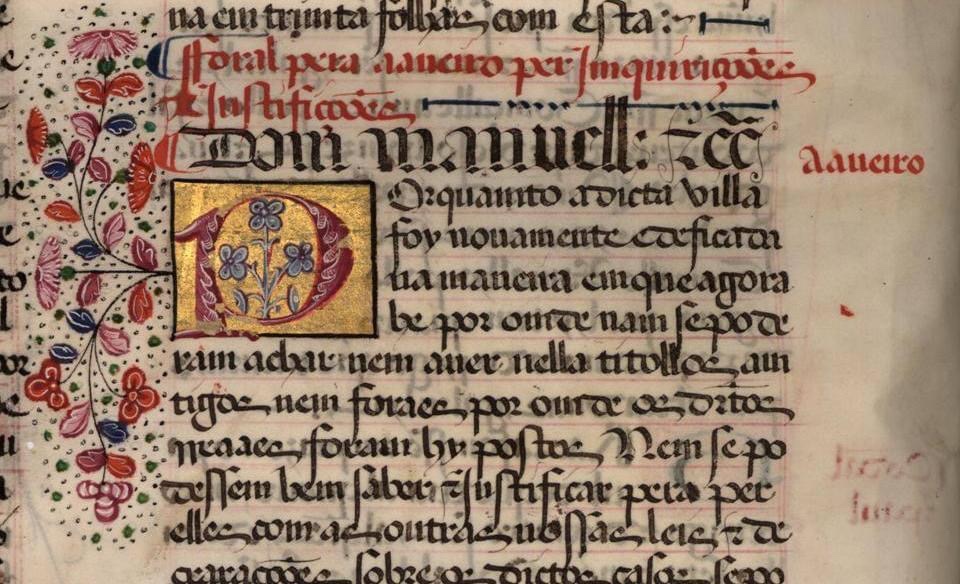 na em trinta folhas com esta:
Foral pera aaueiro per Jnquiriçoões
⁊ Justificaçoões
Dom manuell: ⁊cc̃
Aaueiro
POrquamto a dicta villa
foy nouamente edeficada
na maneira em que agora
he por omde nam se pode
ram achar nem auer nella titollos am
tigos nem foraes por omde os dr̃tos
rreaaes foram hy postos Nem se po
dessem bem saber ⁊ Justificar pera per
elles com as outras nossas leis ⁊ de
craraçoões sobre os dictos casos se po